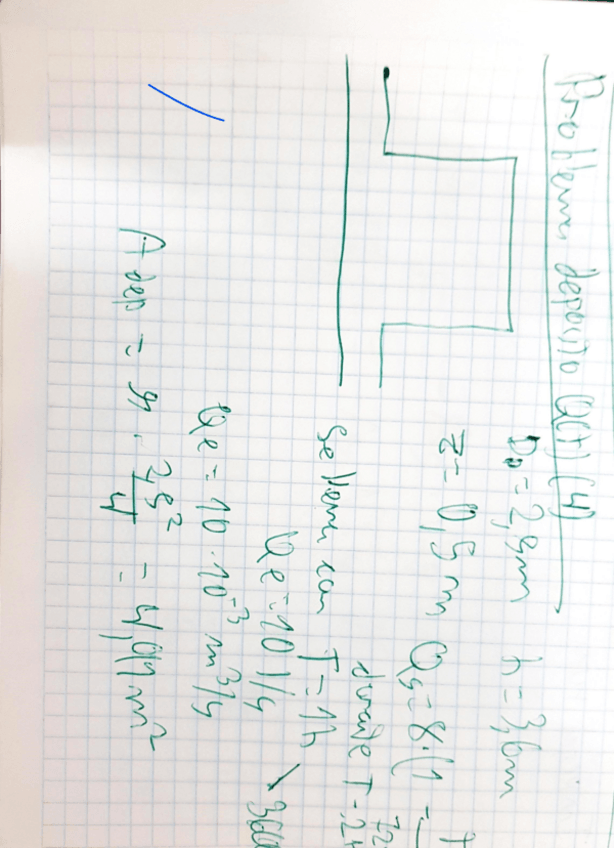 Problema deposito Q(t) (4)
D₀ = 2,5m h = 3,6m
z = 0,5m Qs = 8·(1 - t/72
durante T = 2h
Se llena con T = 1h → 3600
Qe = 10 l/s
Qe = 10·10⁻³ m³/s
A dep = π · 2,5²/4 = 4,91m²